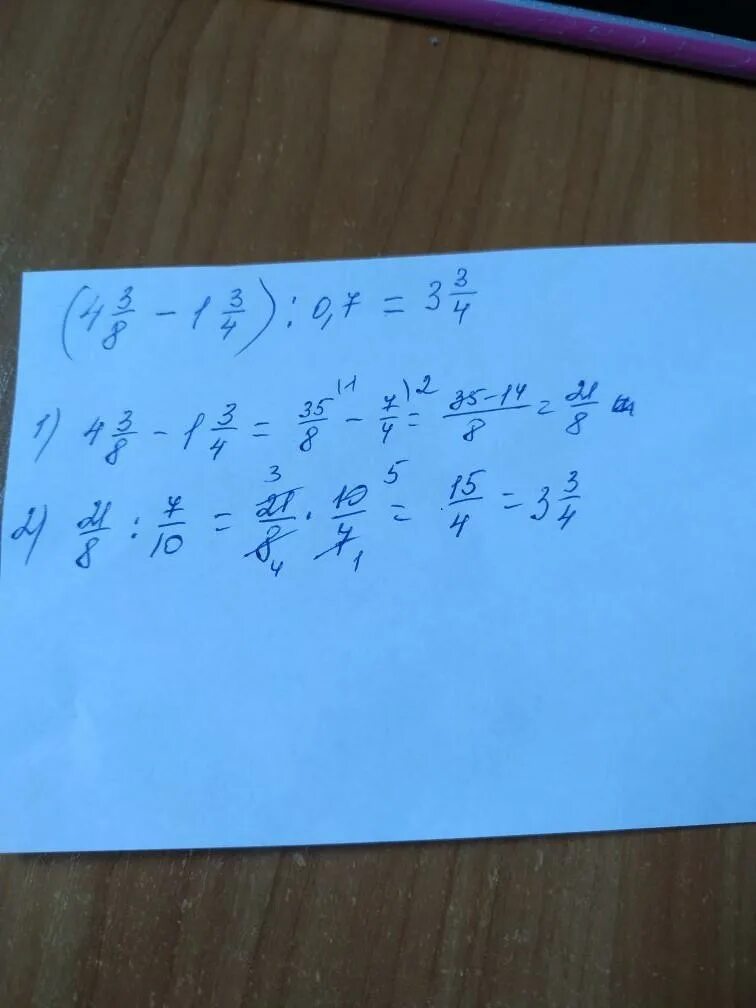 (4 3/8 − 1 3/4) : 0,7 = 3 3/4
1) 4 3/8 − 1 3/4 = 35/8 \1 − 7/4 \2 = 35−14/8 = 21/8
2) 21/8 : 7/10 = 21 3/8 4 · 10 5/7 1 = 15/4 = 3 3/4